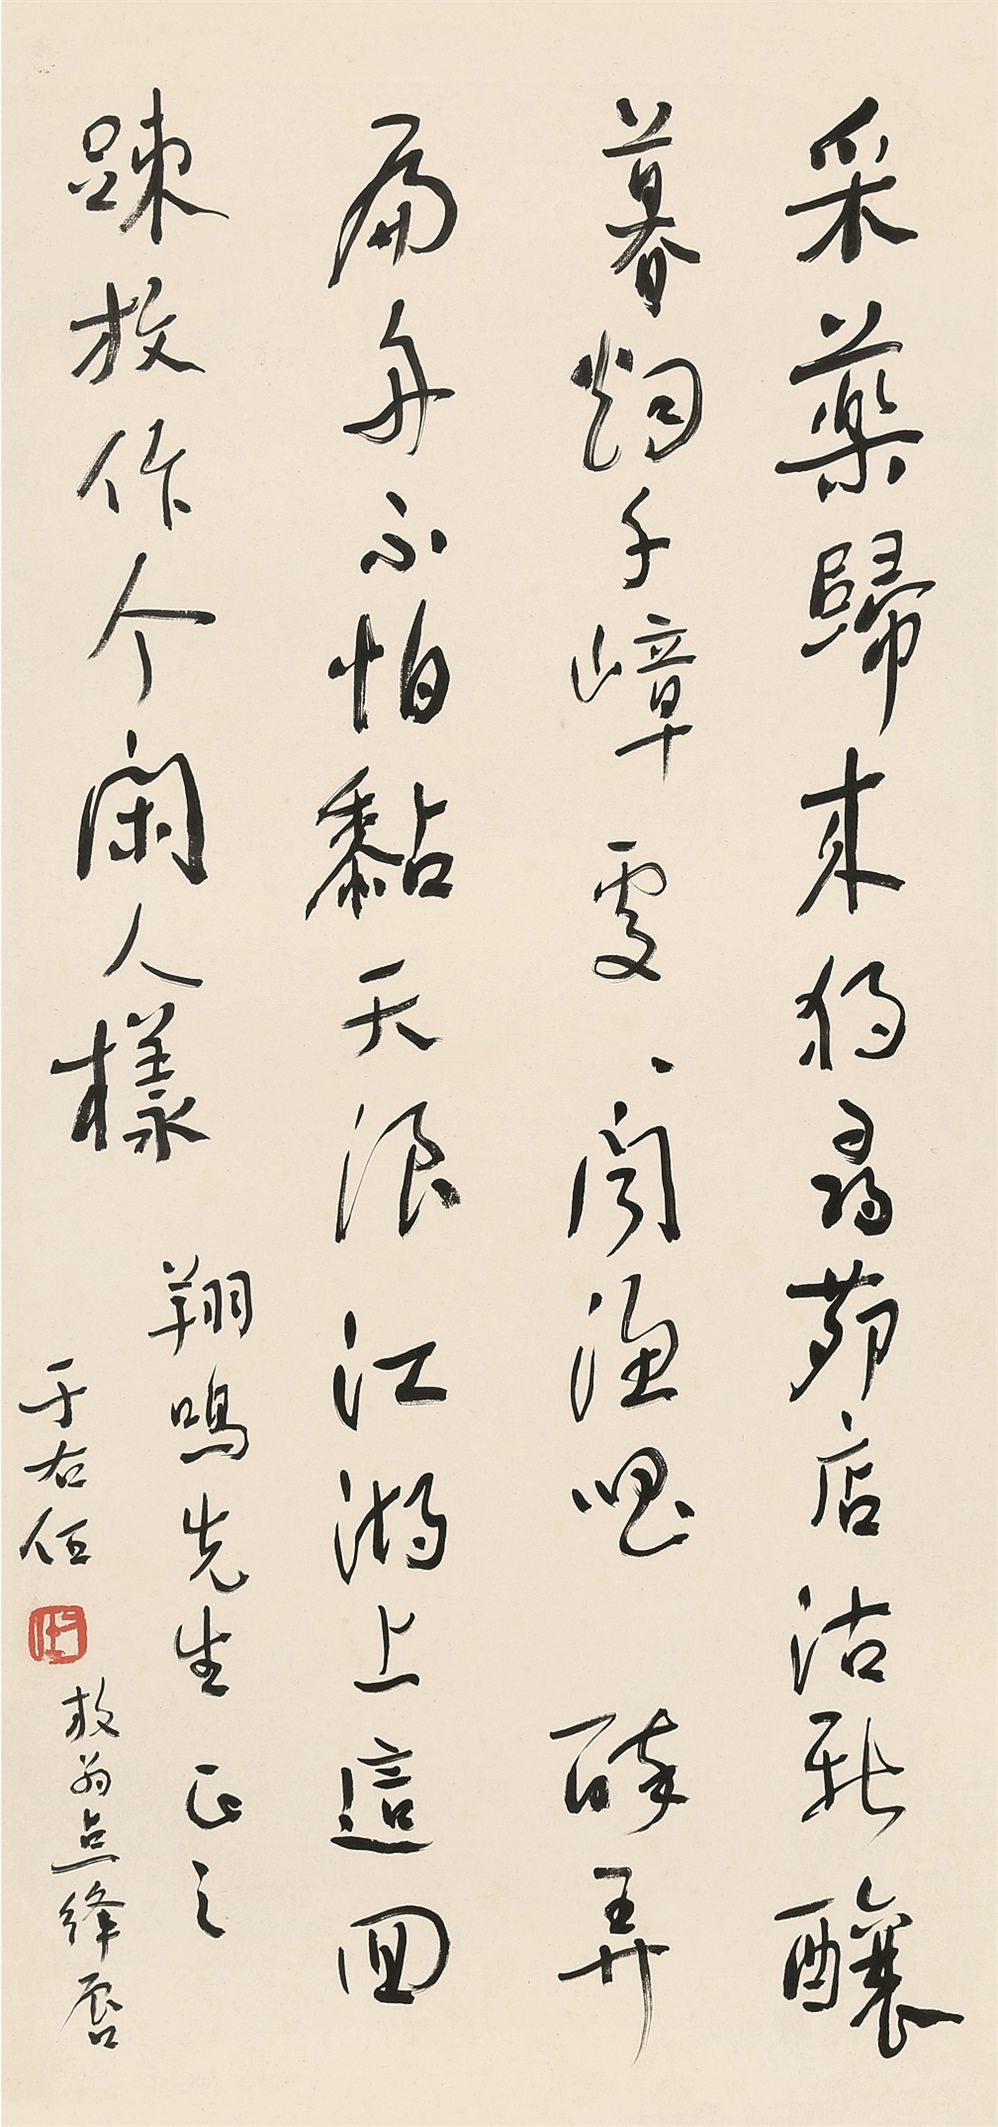 采藥歸來獨尋茆店沽新釀
暮烟千嶂處、聞漁唱 醉弄
扁舟不怕黏天浪江湖上這回
踈放作个閑人樣
翔鳴先生正之
于右任
放翁点絳唇